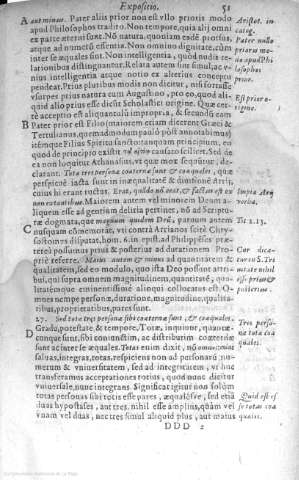 Expositio. 51
A aut minus. Pater aliis prior non est vllo prioris modo
apud Philosophos tradito. Non tempore, quia alij omni
ex parte æterni sunt. Nõ natura, quoniam eadẽ prorsus,
atque ad nunctũ essentia. Non omnino dignitate, cùm
inter se æquales sint. Non intelligentia, quòd nudis re-
lationibus distinguantur. Relata autem sint simul, ac v-
nius intelligentia atque notio ex alterius conceptu
pendeat. Prius pluribus modis non dicitur, nisi fortasse
vsurpes prius natura cum Augustino, pro eo, quod ali-
quid alio prius esse dicũt Scholastici origine. Quæ cer-
tè acceptio est aliquantulũ impropria, & secundũ eam
B Pater prior est Filio (maiorem etiam dicerent Græci &
Tertulianus, quemadmodum paulò pòst annotabimus)
itémque Filius Spiritu sancto tanquam principium, ex
quo de principio existit
de ea non loquitur Athanasius, vt quæ mox sequũtur, de-
clarant. Tota tres personæ coæternæ sunt & coæquales, quæ
perspicuè iacta sunt in inæqualitatẽ & diuisionẽ Arrij,
cuius hi erant ructus. Erat, quãdo nõ erat, & factus est ex
non extantibus. Maiorem autem vel minorem Deum a-
liquem esse ad gentium deliria pertinet, nõ ad Scriptu-
ræ dogmata, quæ magnum quidem Deũ, paruum autem
C nusquam cõmemorãt, vti contra Arrianos scitè Chry-
sostomus disputat, hom. 6. in epist. ad Philippẽses. præ-
terea possumus prius & posterius ad durationem Pro-
priè referre. Maius autem & minus ad quantitatem &
qualitatem, sed eo modulo, quo ista Deo possunt attri-
bui, qui supra omnem magnitudinem, quantitatẽ, qua-
litatémque eminentissimè alioqui collocatus est. Om-
nes nempe personæ, duratione, magnitudine, qualita-
tibus, proprietatibus, pares sunt.
27. Sed tota tres personæ sibi coæternæ sunt, & coæquales.
D Gradu, potestate, & tempore. Totæ, inquione, quantæ-
cunque sunt, sibi coniunctim, ac distributim coæternæ
sunt ac inter se æquales. Totas enim dixit, nõ omnes, quasi
saluas, integras, totas, respiciens non ad personarũ nu-
merum & vniuersitatem, sed ad integritatem, vt huc
transferamus acceptationes totius, quod nunc dicitur
vniuersale, nunc integrans. Significat igitur non solùm
totas personas sibi totis esse pares, æqualésve, sed etiã
duas hypostases, aut tres, nihil esse amplius, quàm vel
vnam vel duas, nec tres simul aliquid plus, aut maius
DDD 2 qualis.
Aristot. in
categ.
Pater nullo
prior est mo-
do apud Phi-
losophos
prior.
Est prior o-
rigine.
Impia Arij
verba.
Tit 2.13.
Cur dica-
tur in S. Tri-
nitate nihil
esse prius &
posterius.
Tres perso-
næ totæ coæ-
quales.
Quid est es-
se totas coæ-
quales.